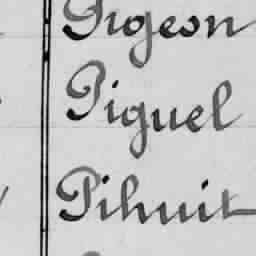 Pigeon
Piguel
Pihuit